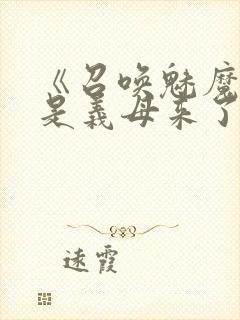 《召唤魅魔
是义母来了
远霞